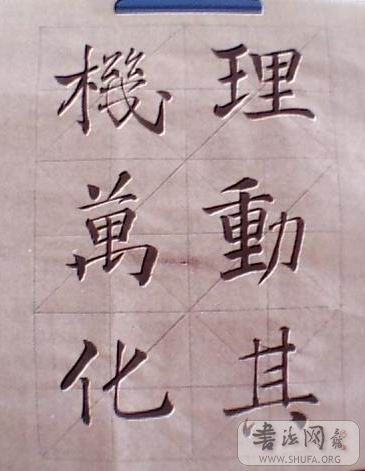 理動其
機萬化
書法网
WWW.SHUFA.ORG